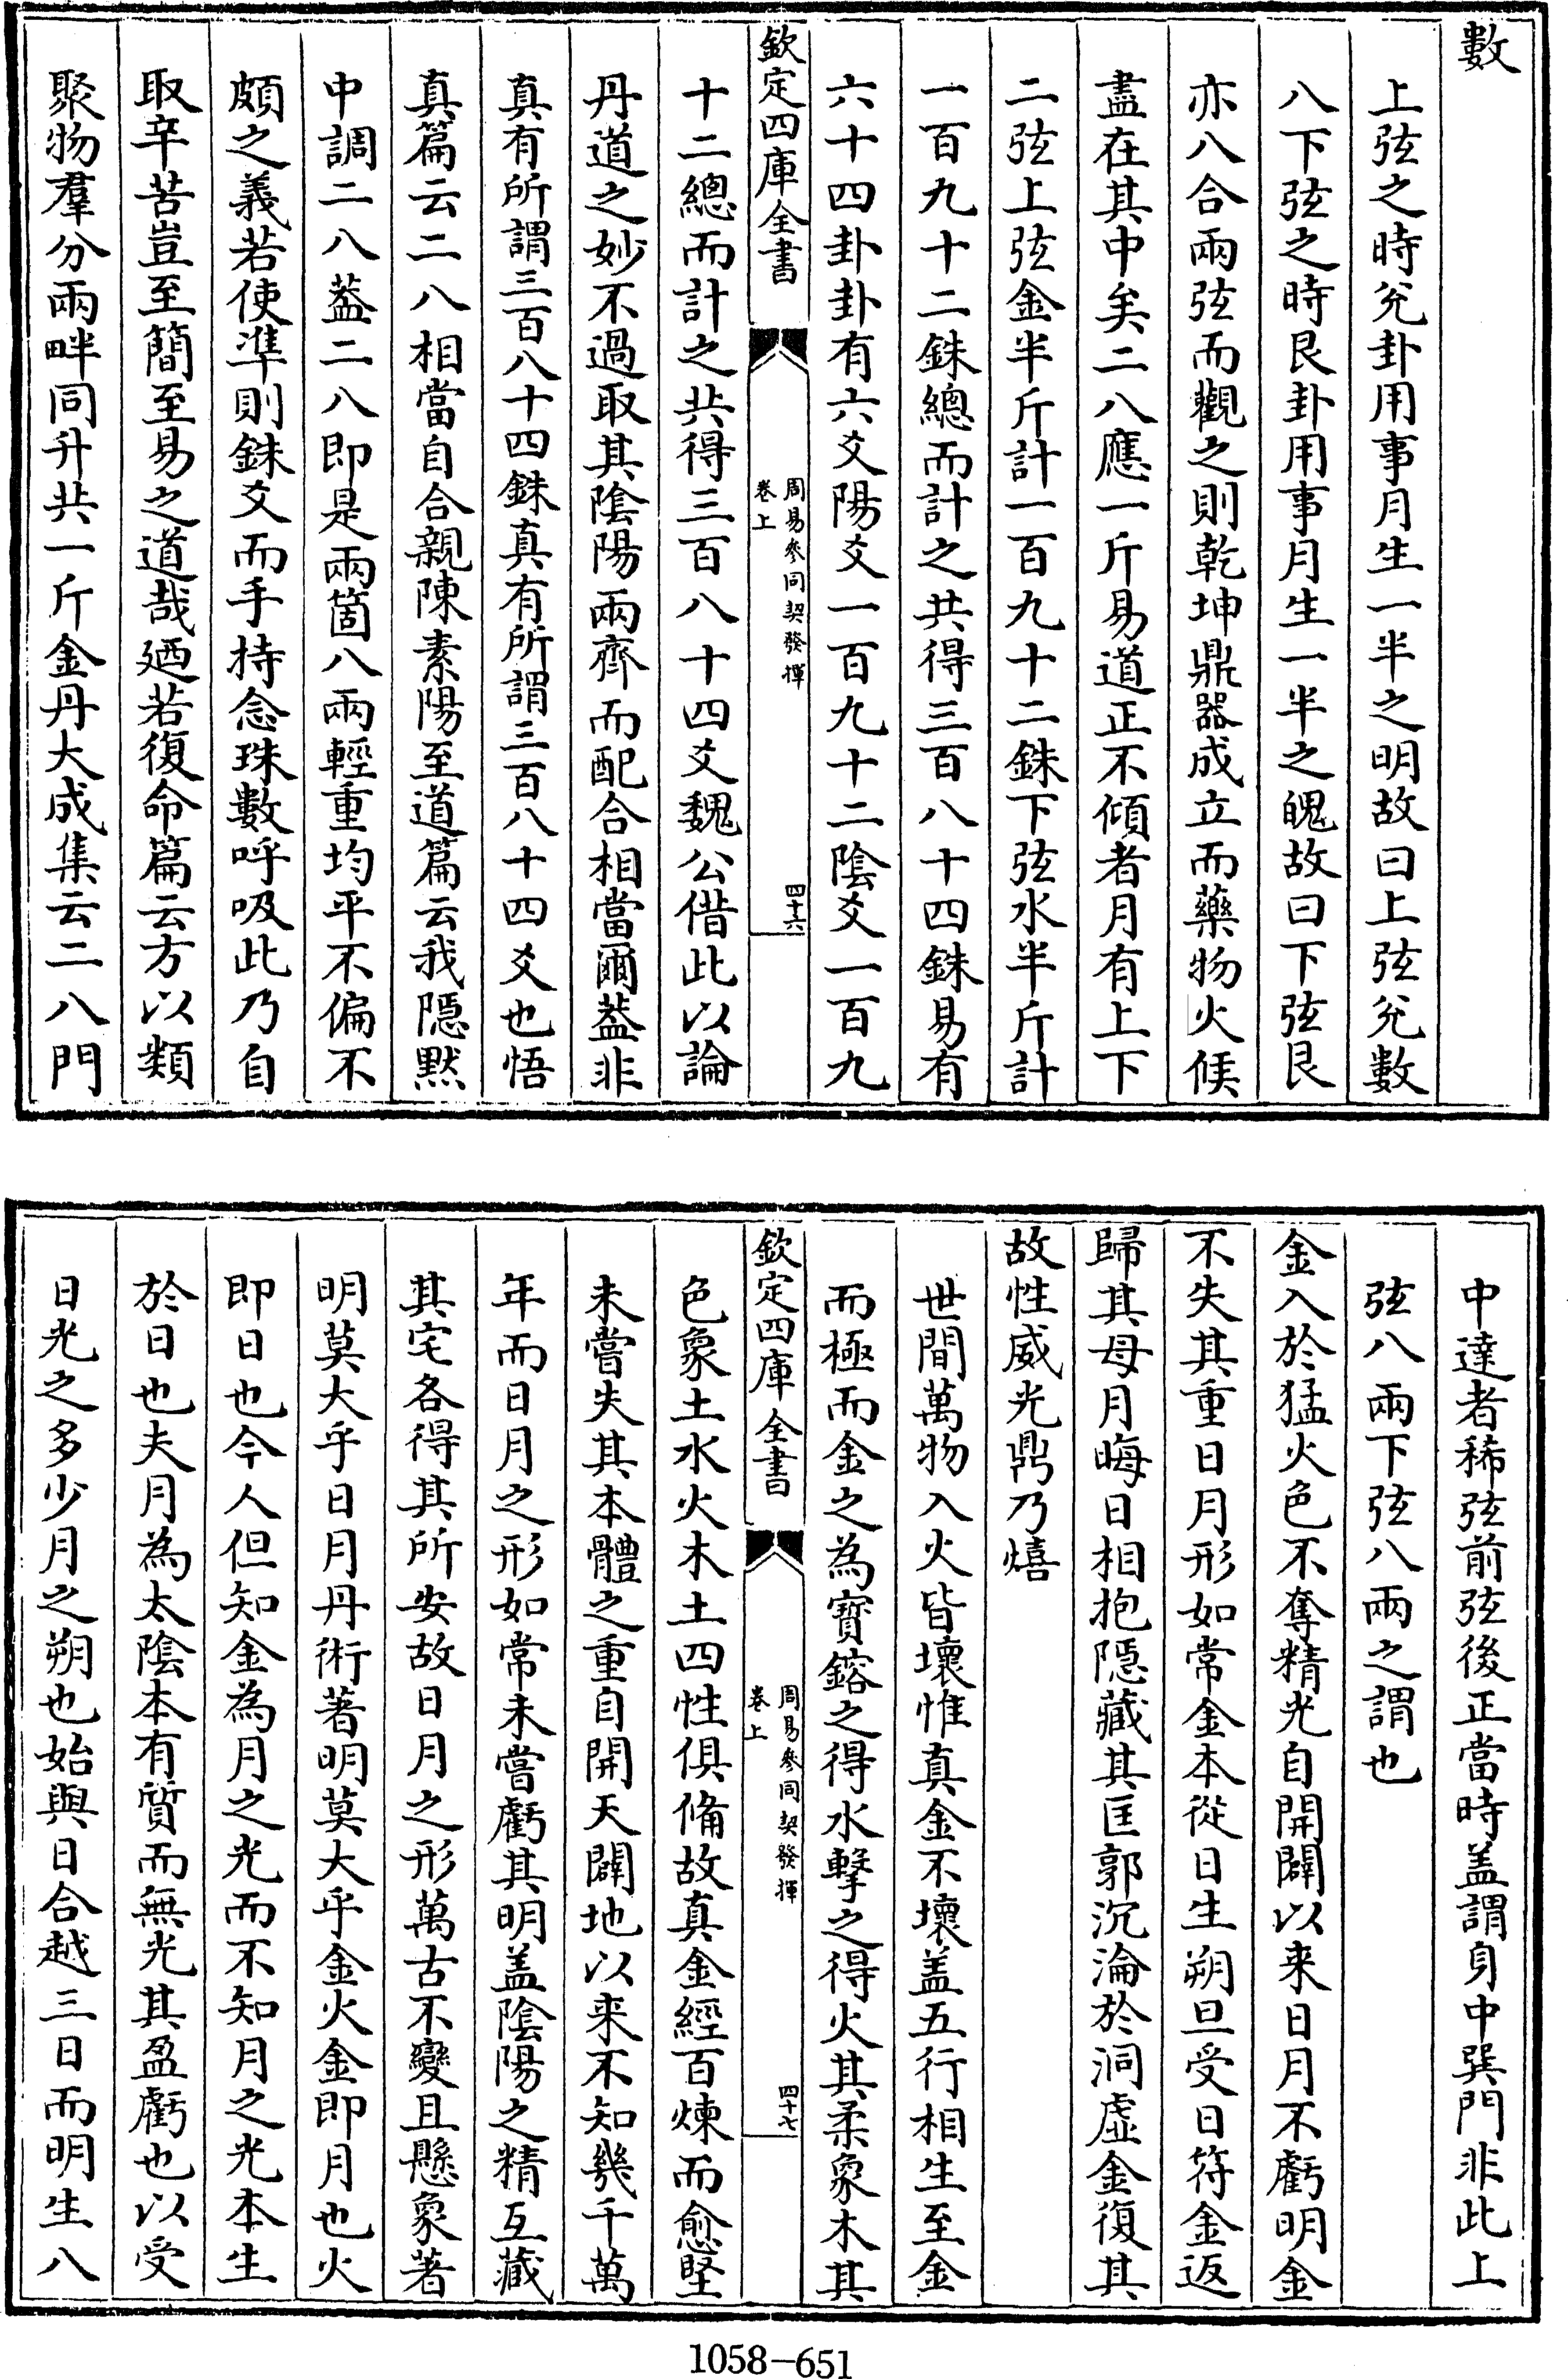 數
上弦之時兊卦用事月生一半之明故曰上弦兊數
八下弦之時艮卦用事月生一半之魄故曰下弦艮
亦八合兩弦而觀之則乾坤鼎器成立而藥物火候
盡在其中矣二八應一斤易道正不傾者月有上下
二弦上弦金半斤計一百九十二銖下弦水半斤計
一百九十二銖總而計之共得三百八十四銖易有
六十四卦卦有六爻陽爻一百九十二陰爻一百九
欽定四庫全書
周易參同契發揮
卷上
四十六
十二總而計之共得三百八十四爻魏公借此以論
丹道之妙不過取其陰陽兩齊而配合相當爾葢非
真有所謂三百八十四銖真有所謂三百八十四爻也悟
真篇云二八相當自合親陳素陽至道篇云我隱黙
中調二八葢二八即是兩箇八兩輕重均平不偏不
頗之義若使凖則銖爻而手持念珠數呼吸此乃自
取辛苦豈至簡至易之道哉廼若復命篇云方以類
聚物羣分兩畔同升共一斤金丹大成集云二八門
中達者稀弦前弦後正當時盖謂身中巽門非此上
弦八兩下弦八兩之謂也
金入於猛火色不奪精光自開闢以来日月不虧明金
不失其重日月形如常金本從日生朔旦受日符金返
歸其母月晦日相抱隠藏其匡郭沉淪於洞虛金復其
故性威光鼎乃熺
世間萬物入火皆壞惟真金不壞盖五行相生至金
而極而金之為寳鎔之得水擊之得火其柔象木其
欽定四庫全書
周易參同契發揮
卷上
四十七
色象土水火木土四性俱俻故真金經百煉而愈堅
未嘗失其本體之重自開天闢地以来不知幾千萬
年而日月之形如常未嘗虧其明盖陰陽之精互藏
其宅各得其所安故日月之形萬古不變且懸象著
明莫大乎日月丹術著明莫大乎金火金即月也火
即日也今人但知金為月之光而不知月之光本生
於日也夫月為太陰本有質而無光其盈虧也以受
日光之多少月之朔也始與日合越三日而明生八
1058-651